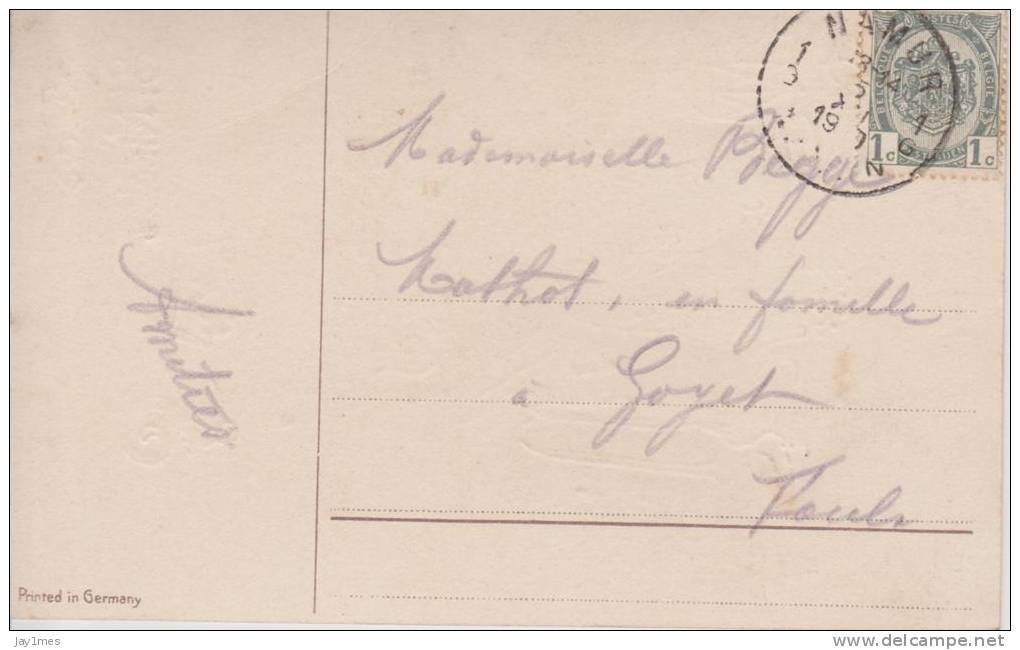 NAMUR 1
POSTES
BELGIQUE
BELGIË
1c
1c
Mademoiselle Begge
Mathot, en famille
à Goyet
Amitiés
Printed in Germany
jay1mes
delcampe.net